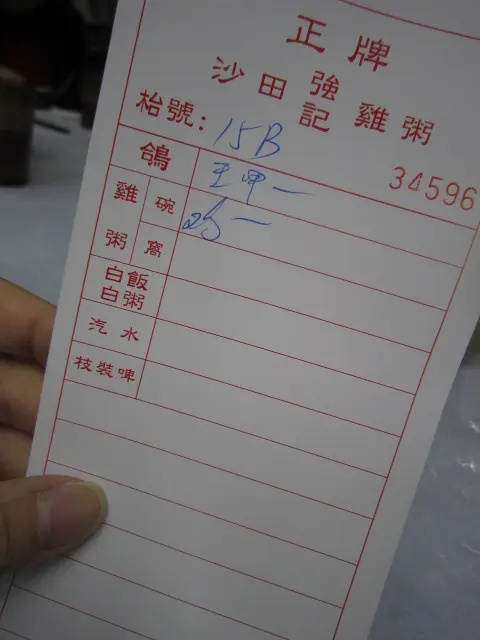 正牌
沙田強記雞粥
枱號: 15B
34596
鴿 王甲一
雞粥 碗
窩
白飯
白粥
汽水
枝裝啤